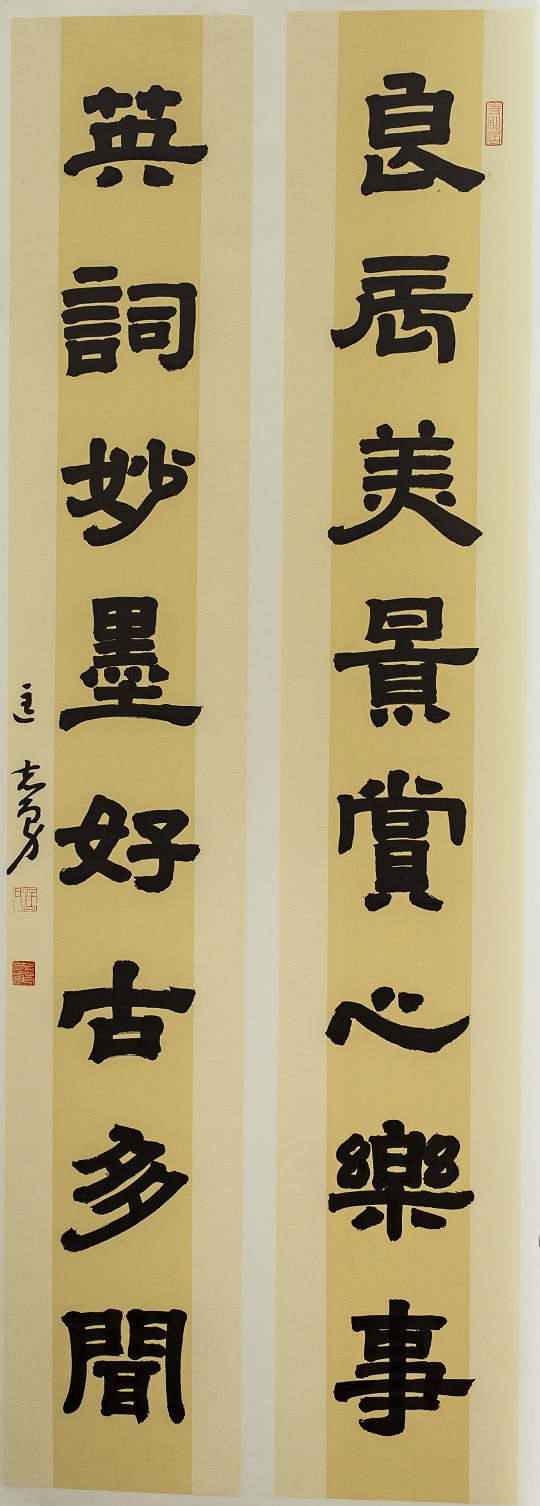 良辰美景賞心樂事
英詞妙墨好古多聞
匡志勇